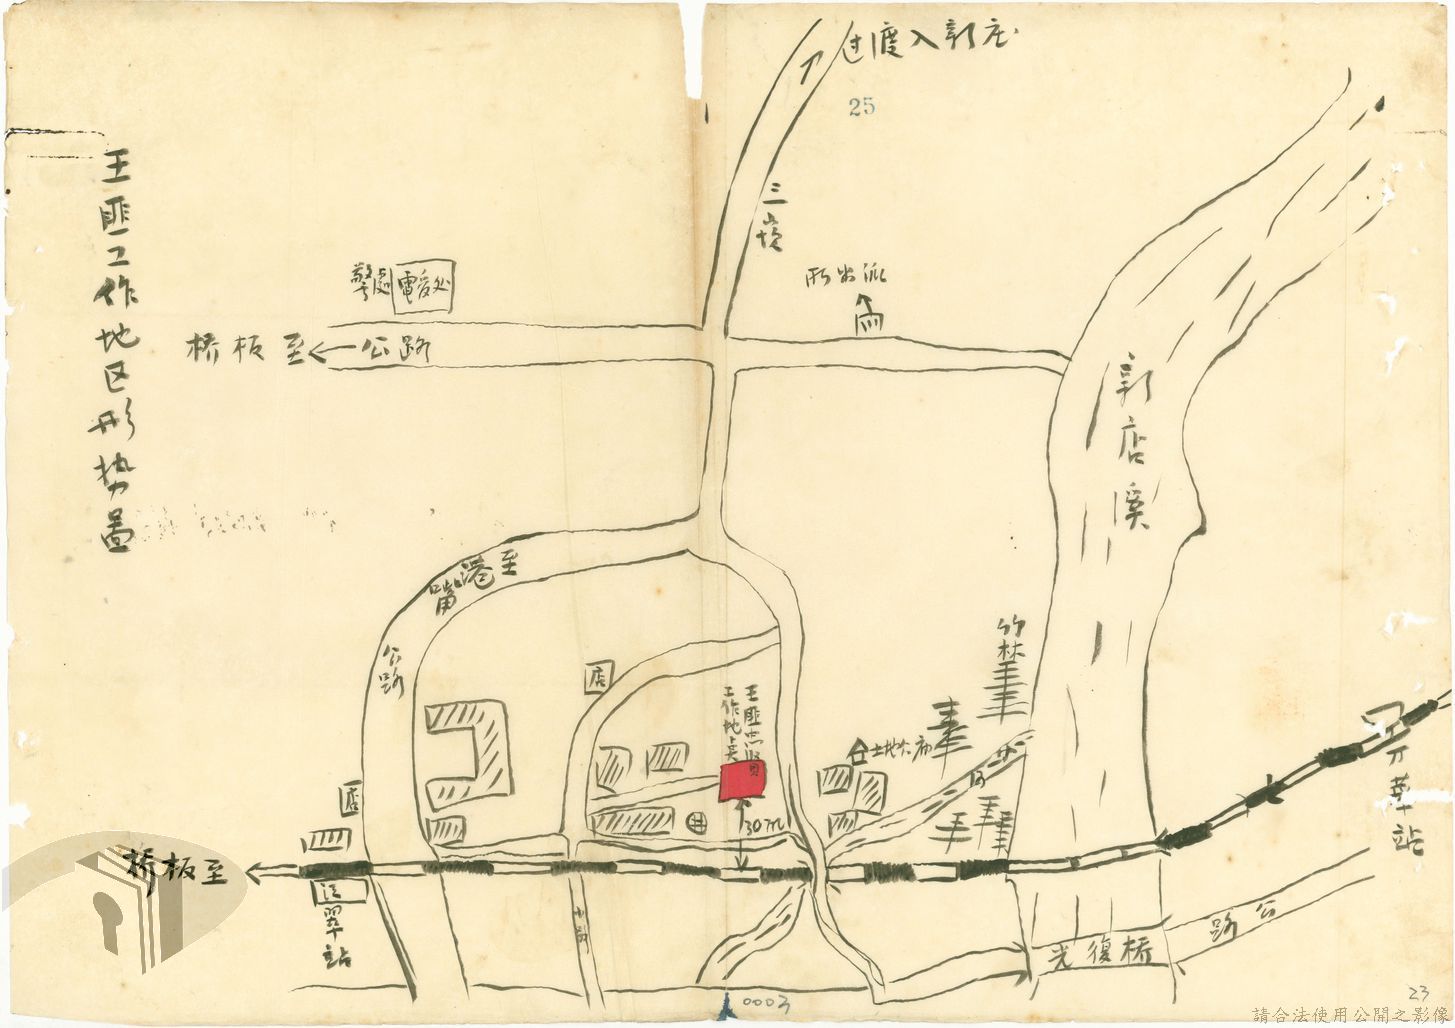 王匪工作地区形势啚
过渡入郭庄
25
三墘
警處
電安处
所出派
桥板至
公路
郭店溪
至港嘴
公路
竹林
店
王匪忠賢
工作地点
土地公廟
30m
井
小河
店
桥板至
江翠站
小路
万華站
公路
光復桥
0003
23
請合法使用公開之影像